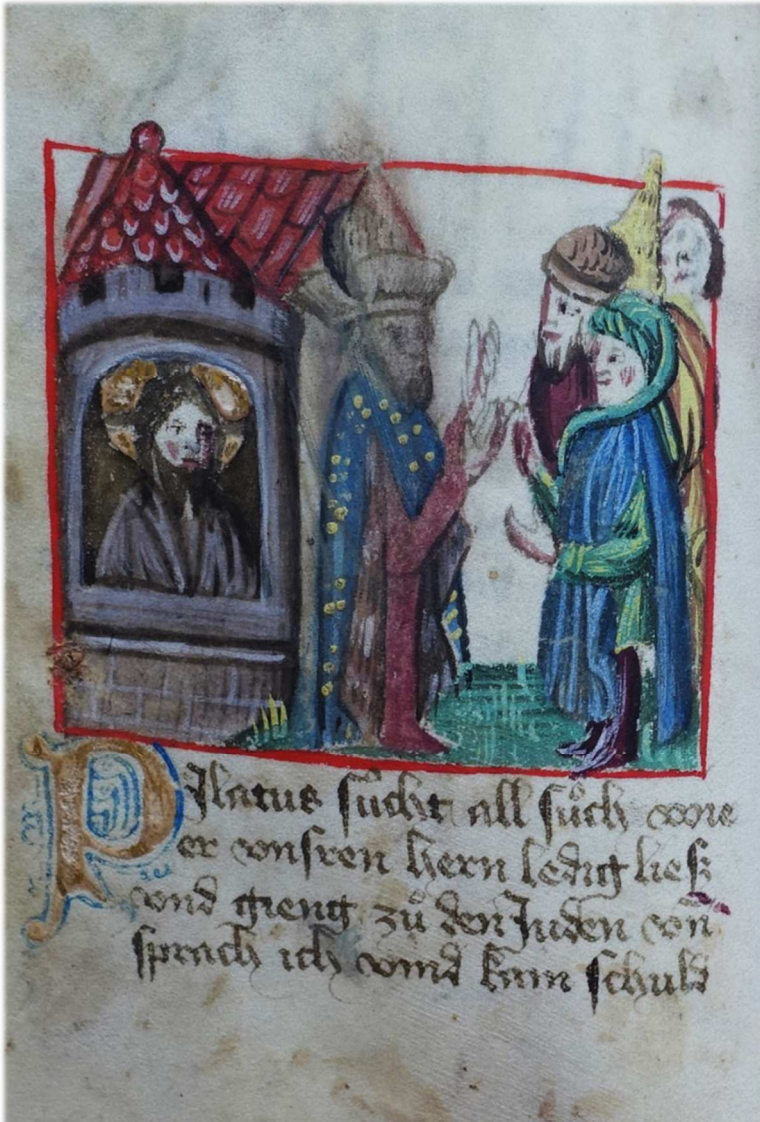 Pilatus sücht all sůch wie
er vnsren hern ledig ließ
vnd gieng zů den Juden vñ
sprach ich vind kain schuld